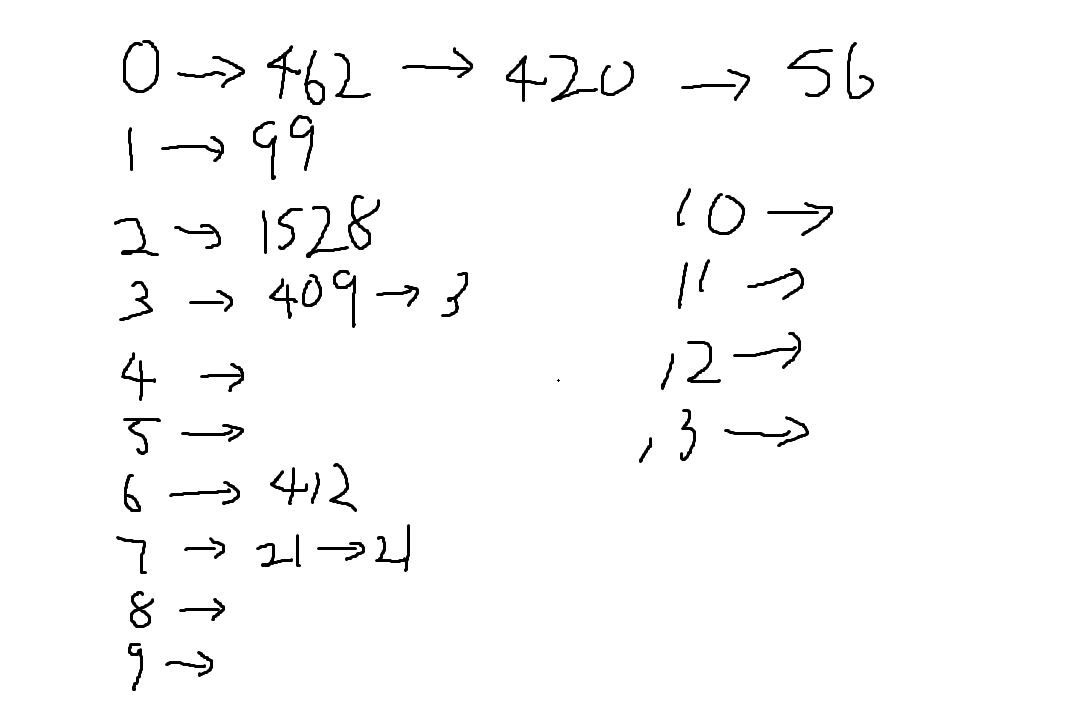 0 → 462 → 420 → 56
1 → 99
2 → 1528
3 → 409 → 3
4 →
5 →
6 → 412
7 → 21 → 21
8 →
9 →
10 →
11 →
12 →
13 →